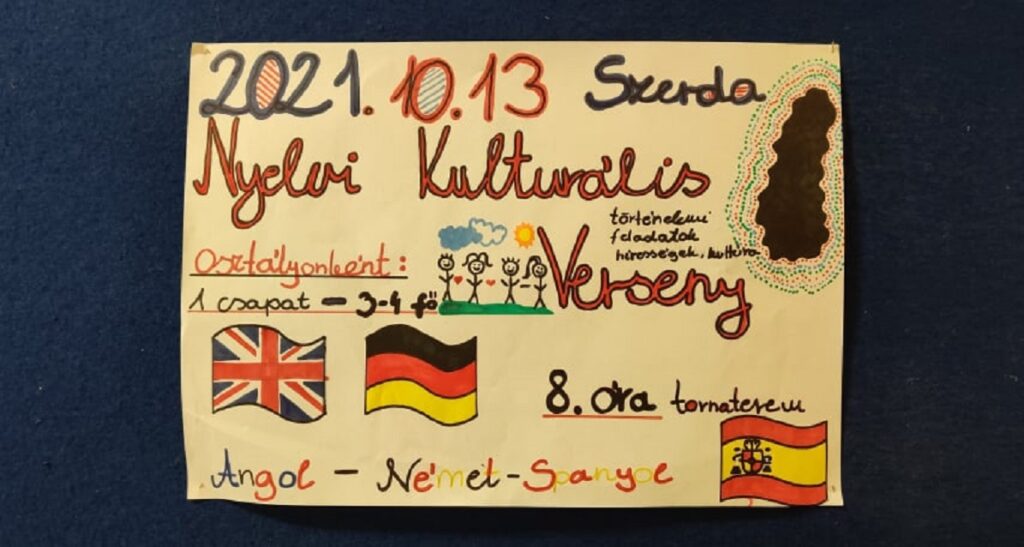 2021. 10.13 Szerda
Nyelvi Kulturális
történelmi
feladatok
hírességek, kultúra
Verseny
Osztályonként:
1 csapat - 3-4 fő
8. óra tornaterem
Angol - Német - Spanyol